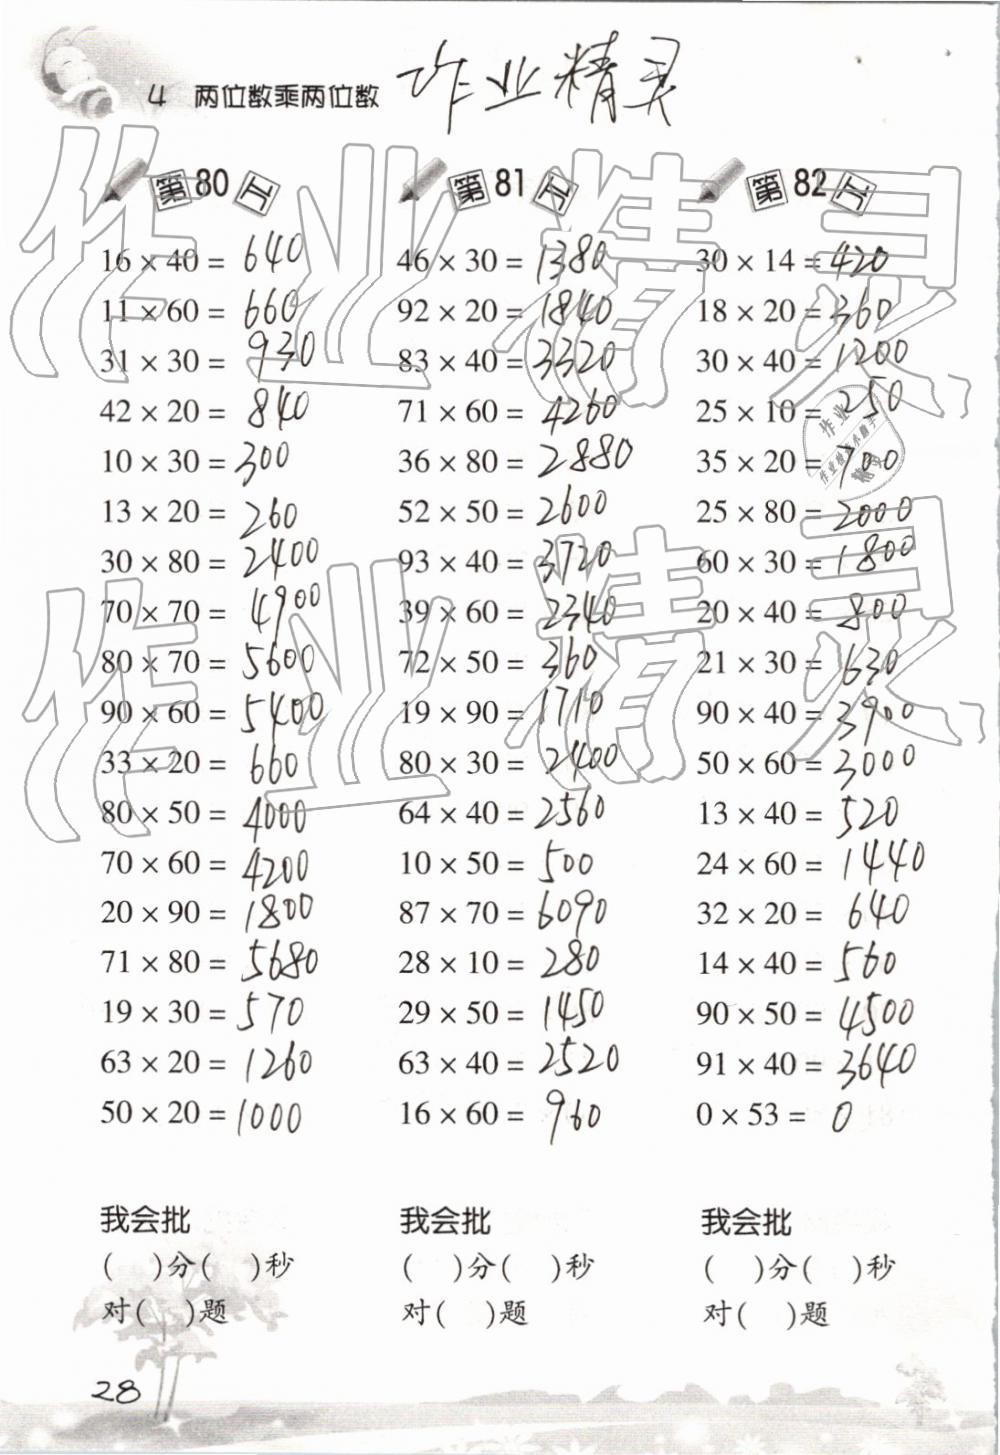 4 两位数乘两位数 作业精灵
第80个
16 × 40 = 640
11 × 60 = 660
31 × 30 = 930
42 × 20 = 840
10 × 30 = 300
13 × 20 = 260
30 × 80 = 2400
70 × 70 = 4900
80 × 70 = 5600
90 × 60 = 5400
33 × 20 = 660
80 × 50 = 4000
70 × 60 = 4200
20 × 90 = 1800
71 × 80 = 5680
19 × 30 = 570
63 × 20 = 1260
50 × 20 = 1000
我会批
( )分( )秒
对( )题
第81
46 × 30 = 1380
92 × 20 = 1840
83 × 40 = 3320
71 × 60 = 4260
36 × 80 = 2880
52 × 50 = 2600
93 × 40 = 3720
39 × 60 = 2340
72 × 50 = 360
19 × 90 = 1710
80 × 30 = 2400
64 × 40 = 2560
10 × 50 = 500
87 × 70 = 6090
28 × 10 = 280
29 × 50 = 1450
63 × 40 = 2520
16 × 60 = 960
我会批
( )分( )秒
对( )题
第82
30 × 14 = 420
18 × 20 = 360
30 × 40 = 1200
25 × 10 = 250
35 × 20 = 700
25 × 80 = 2000
60 × 30 = 1800
20 × 40 = 800
21 × 30 = 630
90 × 40 = 3900
50 × 60 = 3000
13 × 40 = 520
24 × 60 = 1440
32 × 20 = 640
14 × 40 = 560
90 × 50 = 4500
91 × 40 = 3640
0 × 53 = 0
我会批
( )分( )秒
对( )题
28
作业精灵
作业精灵